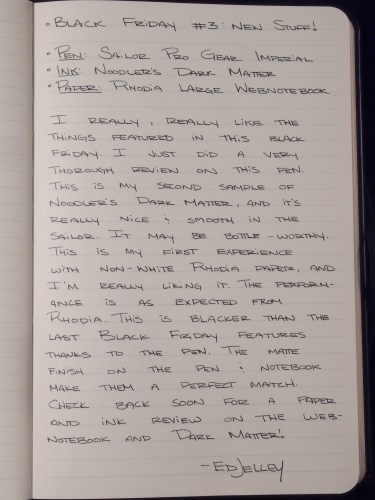 · Black Friday #3: New Stuff!
· Pen: Sailor Pro Gear Imperial
· Ink: Noodler's Dark Matter
· Paper: Rhodia Large Webnotebook
I really, really like the
things featured in this Black
Friday. I just did a very
thorough review on this pen.
This is my second sample of
Noodler's Dark Matter, and it's
really nice & smooth in the
Sailor. It may be bottle-worthy.
This is my first experience
with non-white Rhodia paper, and
I'm really liking it. The perform-
ance is as expected from
Rhodia. This is blacker than the
last Black Friday features
thanks to the pen. The matte
finish on the pen & notebook
make them a perfect match.
Check back soon for a paper
and ink review on the Web-
notebook and Dark Matter!
-Ed Jelley